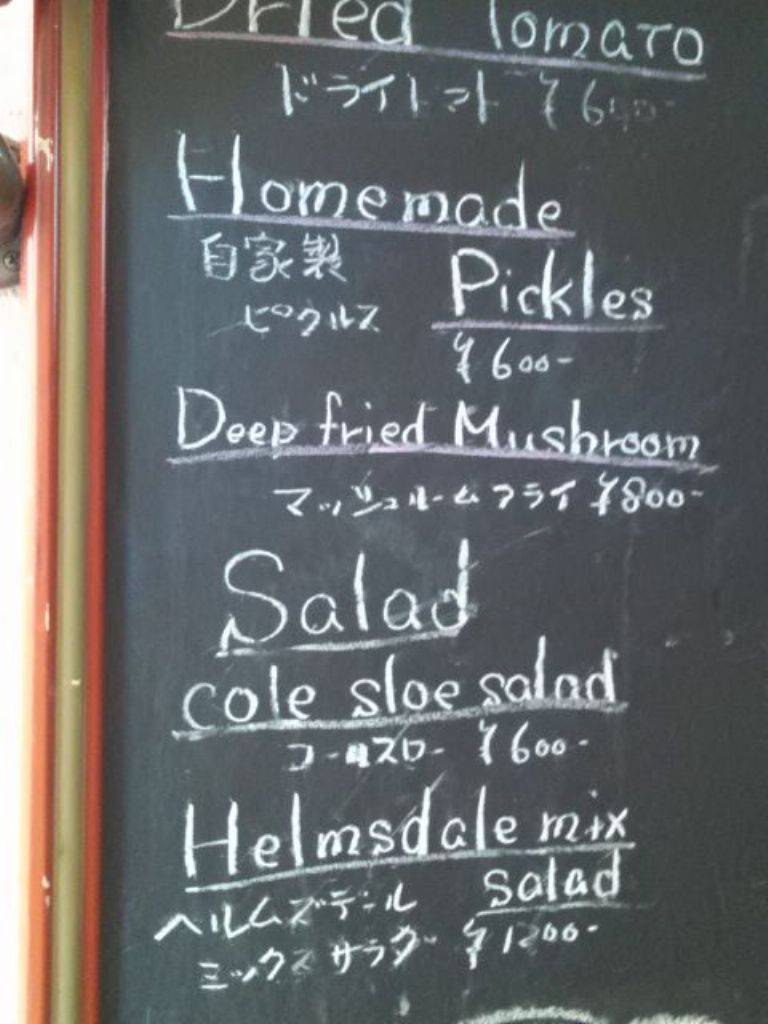 Dried Tomato
ドライトマト ¥600-
Homemade
自家製 Pickles
ピクルス
¥600-
Deep fried Mushroom
マッシュルームフライ ¥800-
Salad
cole sloe salad
コールスロー ¥600-
Helmsdale mix
ヘルムズデール salad
ミックスサラダ ¥1200-